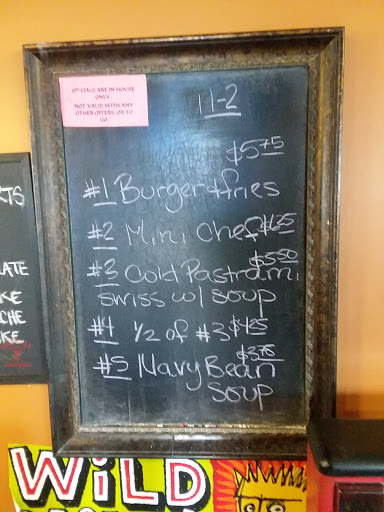 SPECIALS ARE IN HOUSE
ONLY.
NOT VALID WITH ANY
OTHER OFFERS, OR TO
GO.
11-2
$5.75
#1 Burger + fries
#2 Mini Chef $6.25
$5.50
#3 Cold Pastrami
swiss w/ soup
#4 1/2 of #3 $4.25
$3.75
#5 Navy Bean
soup
WiLD
RTS
LATE
KE
CHE
KE